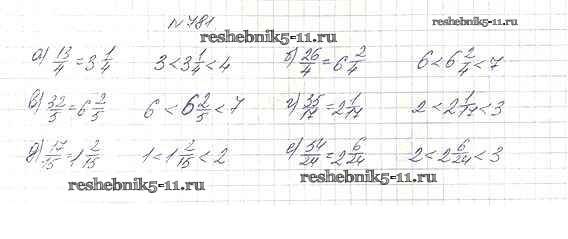 №781
reshebnik5-11.ru
reshebnik5-11.ru
а) 13/4 = 3 1/4 3 < 3 1/4 < 4 б) 26/4 = 6 2/4 6 < 6 2/4 < 7
в) 32/5 = 6 2/5 6 < 6 2/5 < 7 г) 35/17 = 2 1/17 2 < 2 1/17 < 3
д) 17/15 = 1 2/15 1 < 1 2/15 < 2 е) 54/24 = 2 6/24 2 < 2 6/24 < 3
reshebnik5-11.ru
reshebnik5-11.ru